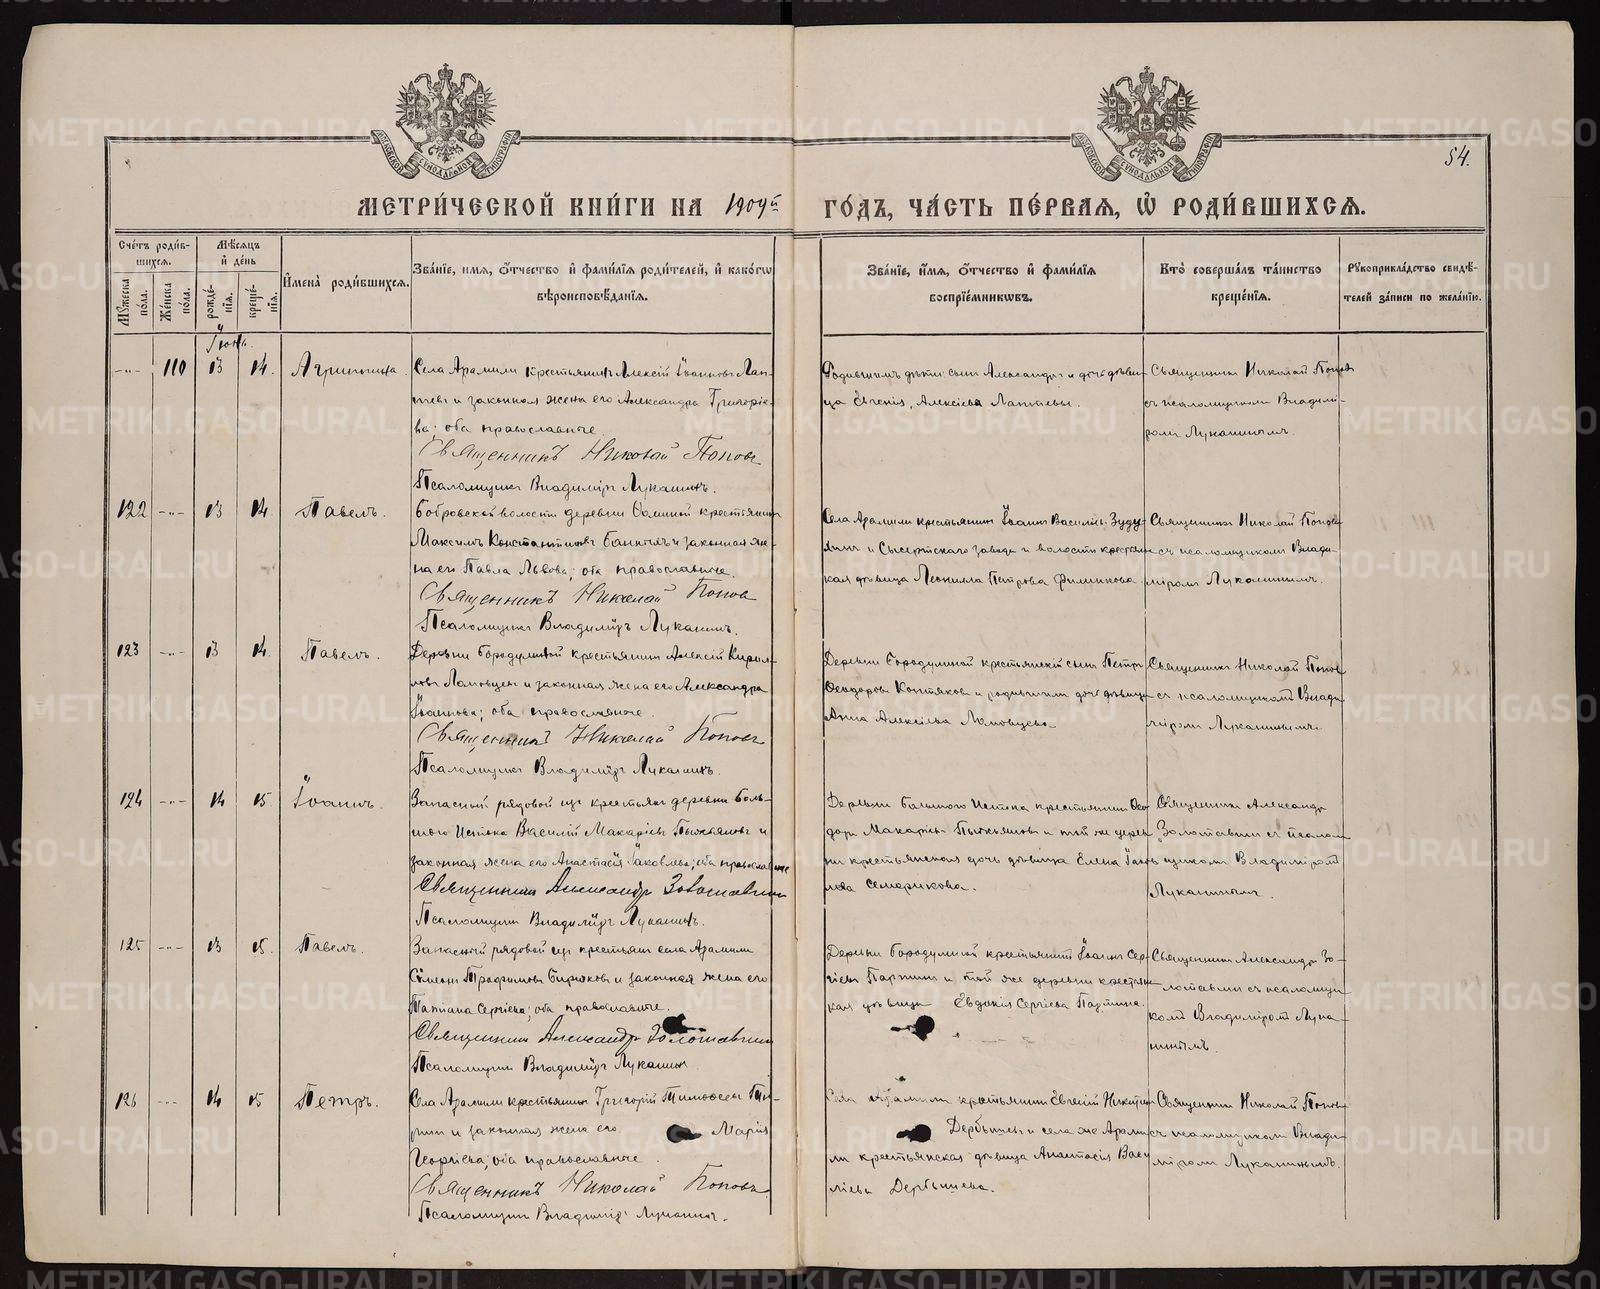 54.
МЕТРИ́ЧЕСКОЙ КНИ́ГИ НА 1909й ГО́ДЪ, ЧА́СТЬ ПЕ́РВАЯ, Ѡ РОДИ́ВШИХСЯ.
Сче́тъ роди́вшихся.
Мѣ́сяцъ и́ де́нь
И҆мена̀ роди́вшихся.
Зва́нїе, имя, ѻ҆́тчество и҆ фами́лїѧ роди́телей, и҆ како́гѡ
вѣроисповѣ́данїѧ.
Зва́нїе, и҆́мѧ, ѻ҆́тчество и҆ фами́лїѧ
воспрїе́мникѡвъ.
Кто̀ соверша́лъ та́инство
креще́нїѧ.
Рꙋкоприкла́дство свидѣ́-
телей за́писи по жела́нїю.
Мꙋ́жеска по́ла.
Же́нска по́ла.
рожде́нїѧ.
креще́нїѧ.
Іюнь.
-"- 110 13 14. Агриппина.
Села Арамили крестьянинъ Алексій Іоанновъ Лап-
тевъ и законная жена его Александра Григоріе-
ва; оба православные.
Священникъ Николай Поповъ
Псаломщикъ Владимиръ Луканинъ.
Родившимъ дѣти: сынъ Александръ и дочь дѣви-
ца Евгенія, Алексіевы Лаптевы.
Священникъ Николай Поповъ
съ псаломщикомъ Владимі-
ромъ Луканинымъ.
122 -"- 13 14 Павелъ.
Бобровской волости деревни крестьянинъ
Максимъ Константиновъ и законная же-
на его Павла Львова; оба православные.
Священникъ Николай Поповъ
Псаломщикъ Владимиръ Луканинъ.
Села Арамили крестьянинъ Іоаннъ Василіевъ
и Сысертскаго завода и волости крестьян-
кая дѣвица Леонилла Петрова Филинкова.
Священникъ Николай Поповъ
съ псаломщикомъ Влади-
міромъ Луканинымъ.
123 -"- 13 14 Павелъ.
Деревни Бородулиной крестьянинъ Алексій Кирил-
ловъ Ломовцевъ и законная жена его Александра
Іоаннова; оба православные.
Священникъ Николай Поповъ
Псаломщикъ Владимиръ Луканинъ.
Деревни Бородулиной крестьянскій сынъ Петръ
Ѳеодоровъ Костяковъ и родившимъ дочь дѣвица
Анна Алексіева Ломовцева.
Священникъ Николай Поповъ
съ псаломщикомъ Влади-
міромъ Луканинымъ.
124 -"- 14 15. Іоаннъ.
Запасный рядовой изъ крестьянъ деревни Боль-
шого Истока Василій Макаріевъ Пыжьяновъ и
законная жена его Анастасія Іаковлева; оба православные
Священникъ Александръ Золотавинъ
Псаломщикъ Владимиръ Луканинъ.
Деревни Большого Истока крестьянинъ Ѳео-
доръ Макаріевъ Пыжьяновъ и той же дерев-
ни крестьянская дочь дѣвица Елена Іаков-
лева Семерикова.
Священникъ Александръ
Золотавинъ съ псалом-
щикомъ Владиміромъ
Луканинымъ.
125 -"- 13 15. Павелъ.
Запасный рядовой изъ крестьянъ села Арамили
Симеонъ Трофимовъ Бирюковъ и законная жена его
Татіана Сергіева; оба православные.
Священникъ Александръ Золотавинъ
Псаломщикъ Владимиръ Луканинъ.
Деревни Бородулиной крестьянинъ Іоаннъ Сер-
гіевъ Партинъ и той же деревни крестьян-
кая дѣвица Евдокія Сергіева Партина.
Священникъ Александръ Зо-
лотавинъ съ псаломщи-
комъ Владиміромъ Лука-
нинымъ.
126 -"- 14 15 Петръ.
Села Арамили крестьянинъ Григорій Тимоѳеевъ
и законная жена его Марія
Георгіева; оба православные.
Священникъ Николай Поповъ
Псаломщикъ Владимиръ Луканинъ.
Села Арамили крестьянинъ Евгеній Никитинъ
Дербышевъ и села же Арами-
ли крестьянская дѣвица Анастасія Васи-
ліева Дербышева.
Священникъ Николай Поповъ
съ псаломщикомъ Влади-
міромъ Луканинымъ.
METRIKI.GASO-URAL.RU